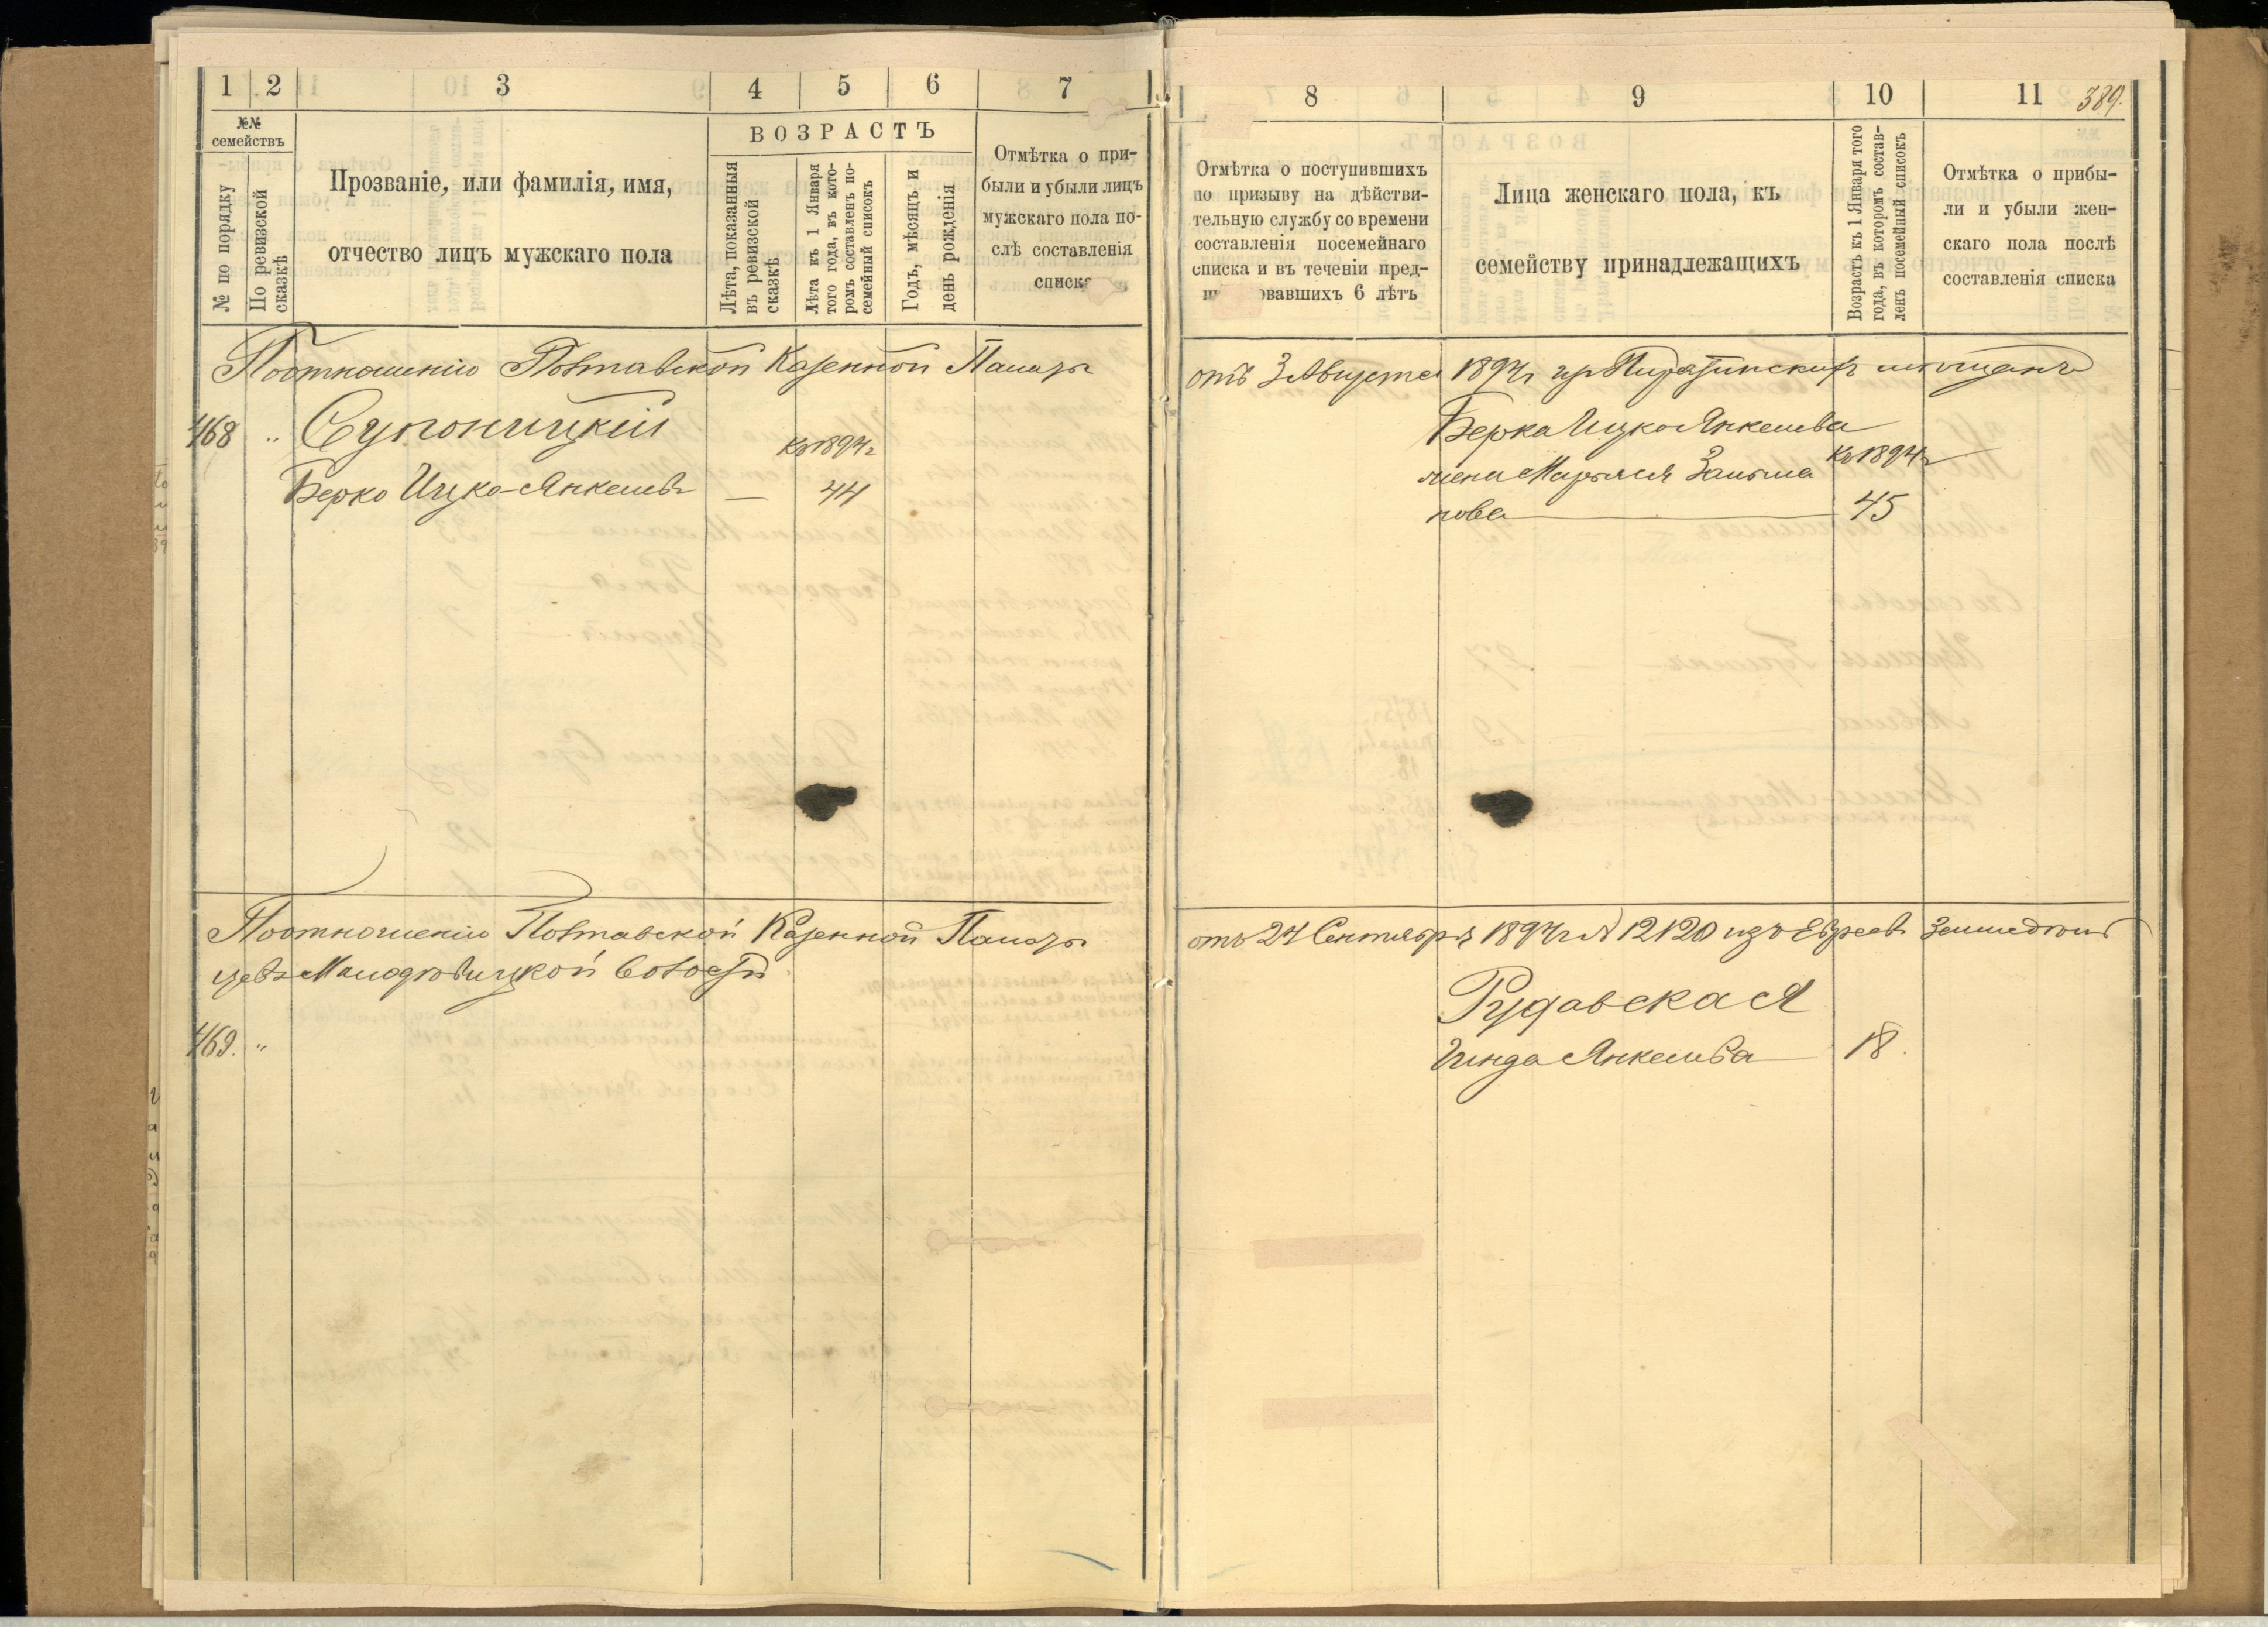 1 2 3 4 5 6 7
№№ семействъ
№ по порядку
По ревизской сказкѣ
Прозваніе, или фамилія, имя,
отчество лицъ мужскаго пола
ВОЗРАСТЪ
Лѣта, показанныя
въ ревизской
сказкѣ
Лѣта къ 1 Января
того года, въ кото-
ромъ составленъ по-
семейный списокъ
Годъ, мѣсяцъ и
день рожденія
Отмѣтка о при-
были и убыли лицъ
мужскаго пола по-
слѣ составленія
списка
По отношенію Полтавской Казенной Палаты
468 " Супоницкій
къ 1894 г
Берко Ицко-Янкелевъ — 44
По отношенію Полтавской Казенной Палаты
цевъ волости
469. "
8 9 10 11
389.
Отмѣтка о поступившихъ
по призыву на дѣйстви-
тельную службу со времени
составленія посемейнаго
списка и въ теченіи пред-
вавшихъ 6 лѣтъ
Лица женскаго пола, къ
семейству принадлежащихъ
Возрастъ къ 1 Января того
года, въ которомъ состав-
ленъ посемейный списокъ
Отмѣтка о прибы-
ли и убыли жен-
скаго пола послѣ
составленія списка
отъ 3 Августа 1894 г Пирятинскихъ мѣщанъ
Берка Ицко-Янкелева
жена Марьяся
къ 1894 г
нова — 45
отъ 24 Сентября 1894 г № 12120 изъ Евреевъ Земледѣль
Рудавская
Гинда Янкелева — 18.